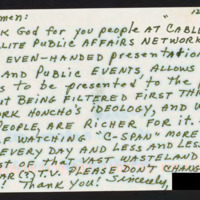 men: 12
K God for you people AT "CABLE
LLITE PUBLIC AFFAIRS NETWORK
EVEN-HANDED presentation
AND PUBLIC EVENTS ALLOWS
S to be presented to the p
UT BEING FILTERED FIRST THR
ORK HONCHO'S IDEOLOGY, AND W
PEOPLE, ARE RICHER FOR IT.
LF WATCHING "C-SPAN" MORE
EVERY DAY AND LESS AND LESS
ST OF THAT VAST WASTELAND
AR (?) T.V. PLEASE DON'T CHANG
! Thank you! Sincerely,